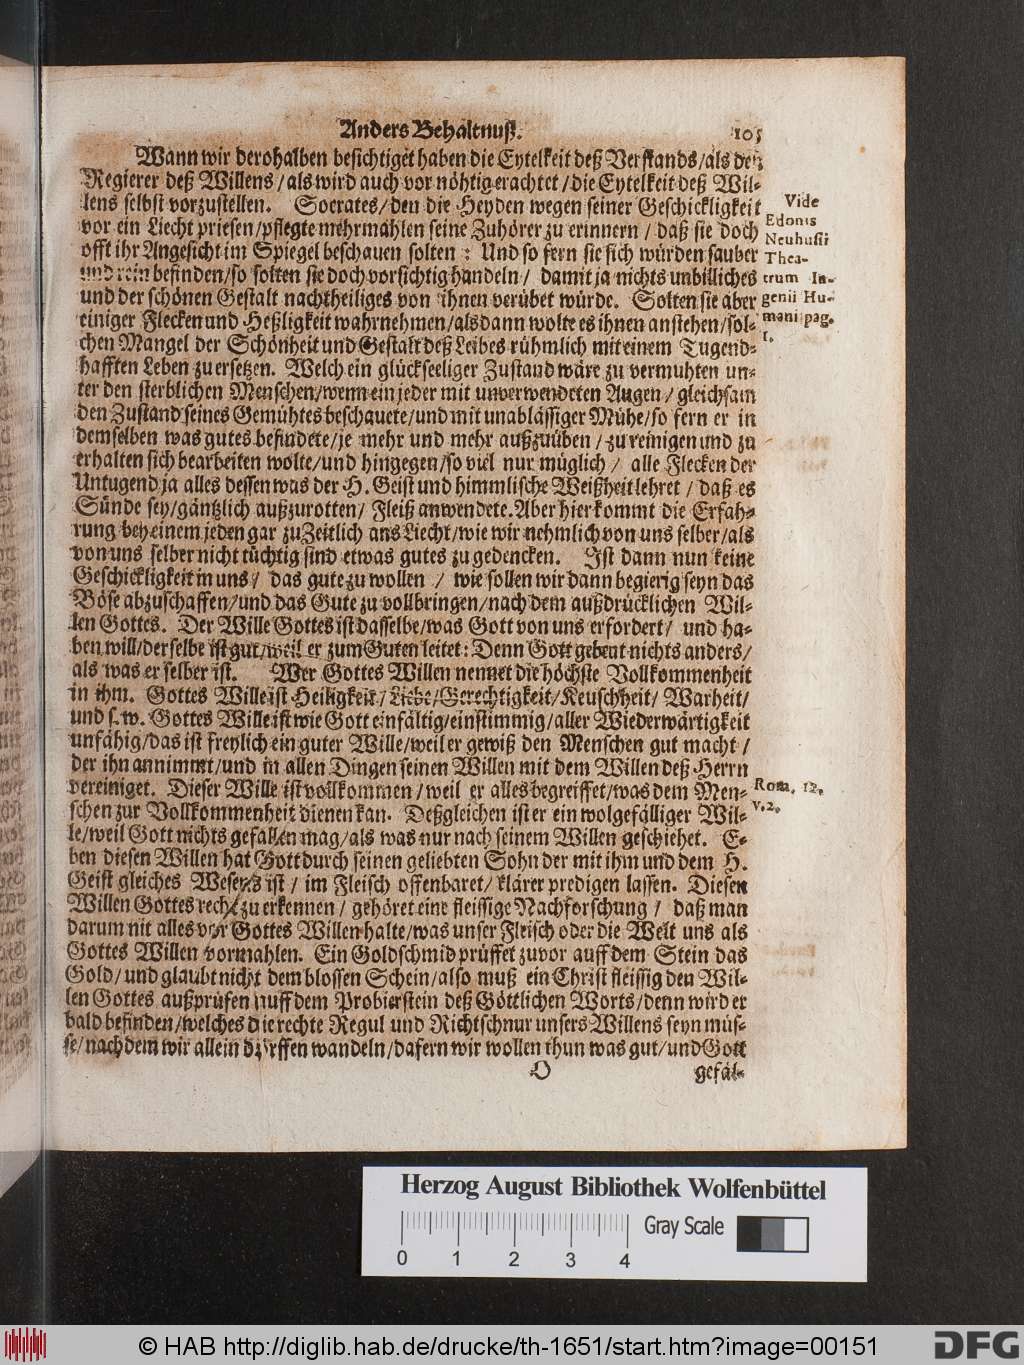 Anders Behältnuß. 105
Wann wir derohalben besichtiget haben die Eytelkeit deß Verstands/als den
Regierer deß Willens/als wird auch vor nöhtig erachtet/die Eytelkeit deß Wil-
lens selbst vorzustellen. Socrates/den die Heyden wegen seiner Geschickligkeit
vor ein Liecht priesen/pflegte mehrmahlen seine Zuhörer zu erinnern/daß sie doch
offt ihr Angesicht im Spiegel beschauen solten: Und so fern sie sich würden sauber
und rein befinden/so solten sie doch vorsichtig handeln/ damit ja nichts unbilliches
und der schönen Gestalt nachtheiliges von ihnen verübet würde. Solten sie aber
einiger Flecken und Heßligkeit wahrnehmen/alsdann wolte es ihnen anstehen/sol-
chen Mangel der Schönheit und Gestalt deß Leibes rühmlich mit einem Tugend-
hafften Leben zu ersetzen. Welch ein glückseeliger Zustand wäre zu vermuhten un-
ter den sterblichen Menschen/wenn ein jeder mit unverwendeten Augen/gleichsam
den Zustand seines Gemühtes beschauete/und mit unablässiger Mühe/so fern er in
demselben was gutes befindete/je mehr und mehr außzuüben/zu reinigen und zu
erhalten sich bearbeiten wolte/und hingegen/so viel nur müglich/ alle Flecken der
Untugend ja alles dessen was der H. Geist und himmlische Weißheit lehret/daß es
Sünde sey/gäntzlich außzurotten/Fleiß anwendete. Aber hier kommt die Erfah-
rung bey einem jeden gar zu Zeitlich ans Liecht/wie wir nehmlich von uns selber/als
von uns selber nicht tüchtig sind etwas gutes zu gedencken. Ist dann nun keine
Geschickligkeit in uns/ das gute zu wollen/ wie sollen wir dann begierig seyn das
Böse abzuschaffen/und das Gute zu vollbringen/nach dem außdrücklichen Wil-
len Gottes. Der Wille Gottes ist dasselbe/was Gott von uns erfordert/ und ha-
ben will/derselbe ist gut/weil er zum Guten leitet: Denn Gott gebeut nichts anders/
als was er selber ist. Wer Gottes Willen nennet die höchste Vollkommenheit
in ihm. Gottes Wille ist Heiligkeit/Liebe/Gerechtigkeit/Keuschheit/Warheit/
und s.w. Gottes Wille ist wie Gott einfältig/einstimmig/aller Wiederwärtigkeit
unfähig/das ist freylich ein guter Wille/weil er gewiß den Menschen gut macht/
der ihn annimmt/und in allen Dingen seinen Willen mit dem Willen deß Herrn
vereiniget. Dieser Wille ist vollkommen/weil er alles begreiffet/was dem Men-
schen zur Vollkommenheit dienen kan. Deßgleichen ist er ein wolgefälliger Wil-
le/weil Gott nichts gefallen mag/als was nur nach seinem Willen geschiehet. E-
ben diesen Willen hat Gott durch seinen geliebten Sohn der mit ihm und dem H.
Geist gleiches Wesens ist/ im Fleisch offenbaret/klärer predigen lassen. Diesen
Willen Gottes recht zu erkennen/ gehöret eine fleissige Nachforschung/ daß man
darum nit alles vor Gottes Willen halte/was unser Fleisch oder die Welt uns als
Gottes Willen vormahlen. Ein Goldschmid prüffet zuvor auff dem Stein das
Gold/und glaubt nicht dem blossen Schein/also muß ein Christ fleissig den Wil-
len Gottes außprüfen auff dem Probierstein deß Göttlichen Worts/denn wird er
bald befinden/welches die rechte Regul und Richtschnur unsers Willens seyn müs-
se/nach dem wir allein dürffen wandeln/dafern wir wollen thun was gut/und Gott
O gefäl-
Vide
Edonis
Neuhusii
Thea-
trum In-
genii Hu-
mani pag.
1.
Rom. 12.
v. 2.
Herzog August Bibliothek Wolfenbüttel
Gray Scale
0 1 2 3 4
© HAB http://diglib.hab.de/drucke/th-1651/start.htm?image=00151
DFG